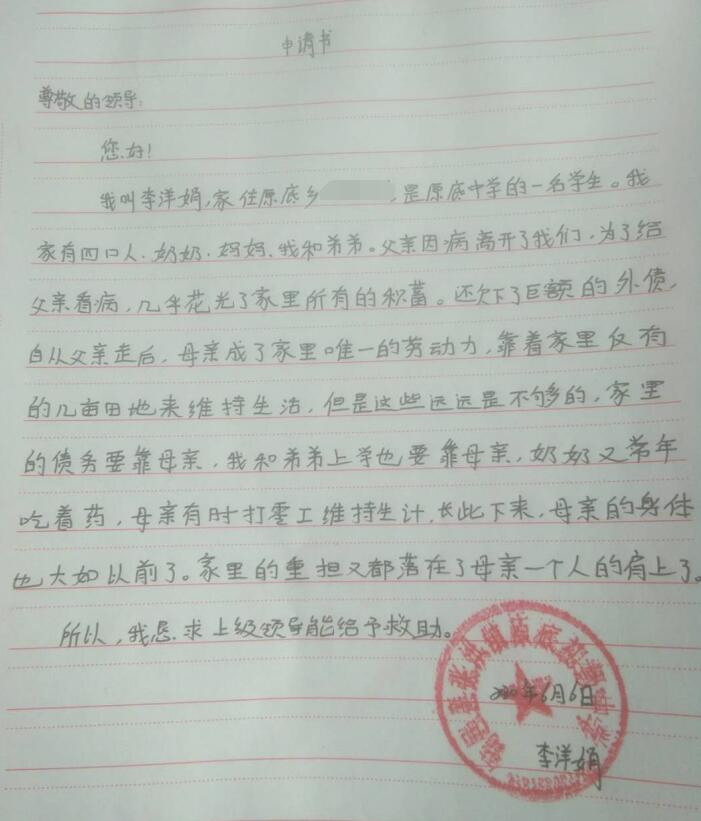 申请书
尊敬的领导:
您好!
我叫李洋娟,家住原底乡,是原底中学的一名学生。我
家有四口人.奶奶.妈妈.我和弟弟。父亲因病离开了我们,为了给
父亲看病,几乎花光了家里所有的积蓄。还欠下了巨额的外债,
自从父亲走后,母亲成了家里唯一的劳动力,靠着家里仅有
的几亩田地来维持生活,但是这些远远是不够的,家里
的债务要靠母亲,我和弟弟上学也要靠母亲,奶奶又常年
吃着药,母亲有时打零工维持生计.长此下来,母亲的身体
也大如以前了。家里的重担又都落在了母亲一个人的肩上了。
所以,我恳求上级领导能给予救助。
2020年6月6日
李洋娟
县张洪镇原底初级中学